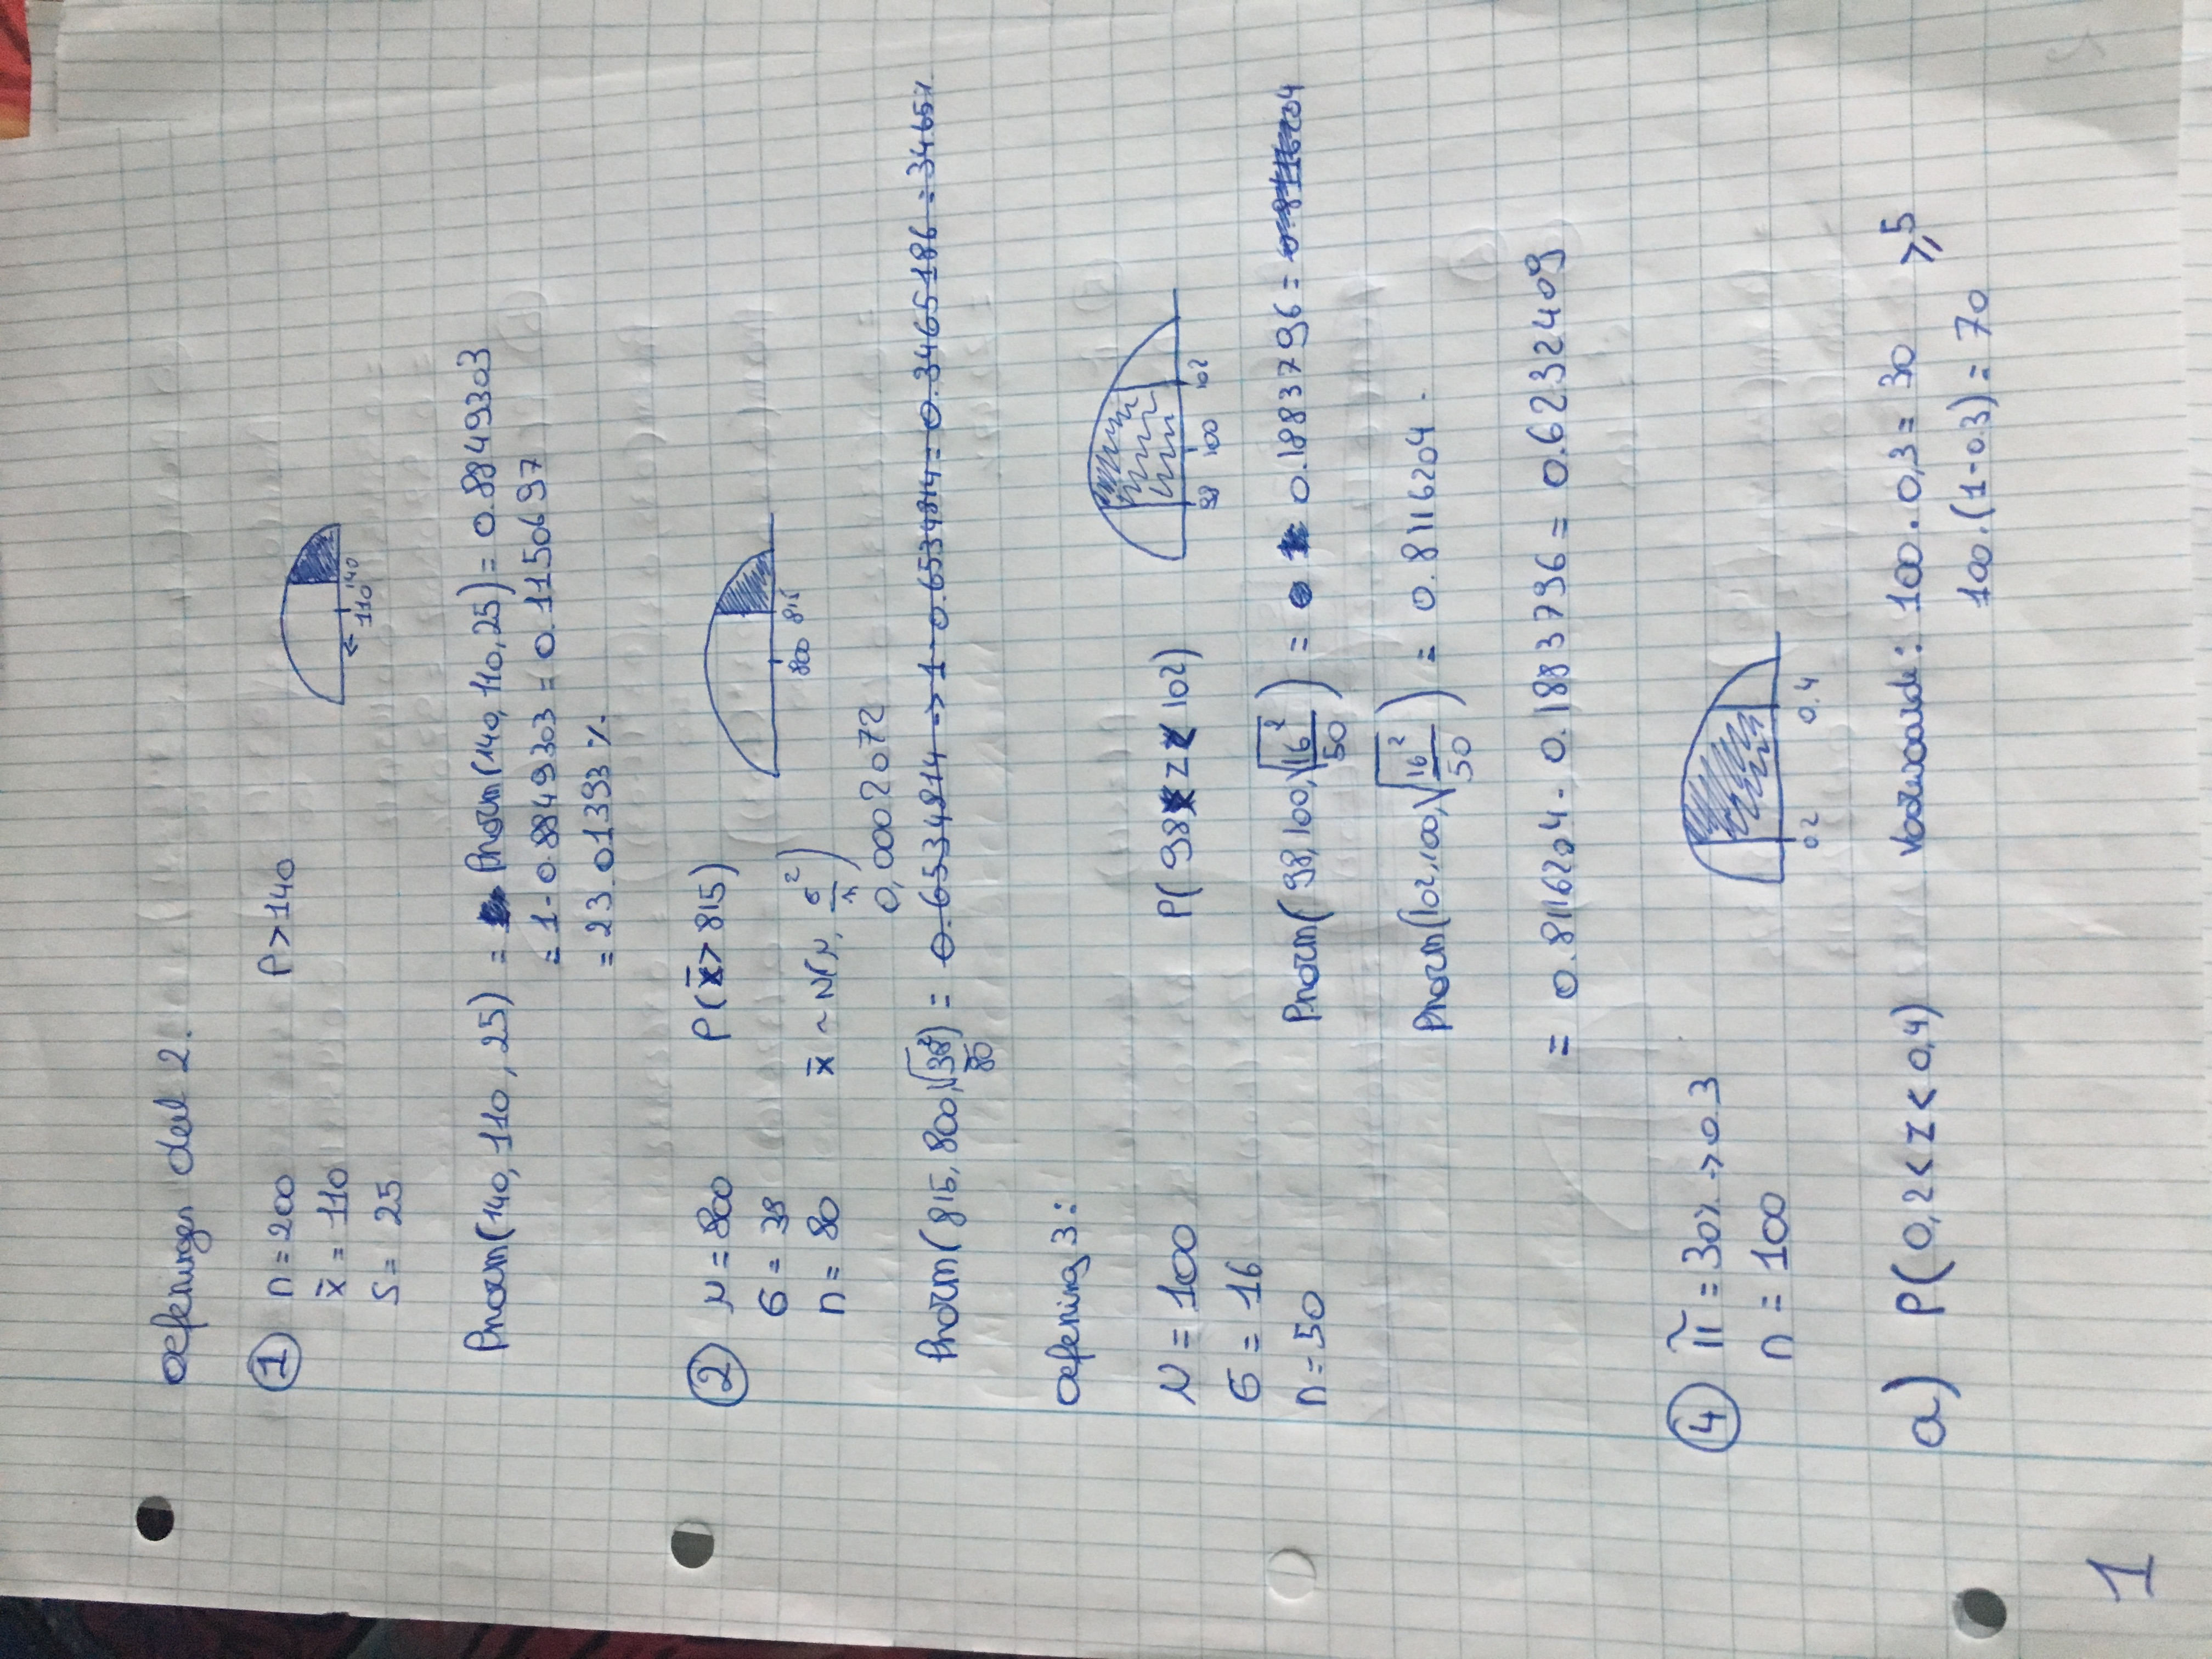 Oefeningen deel 2.
① n = 200 P > 140
x̄ = 110
S = 25
110 140
Pnorm(140, 110, 25) = Pnorm(140, 110, 25) = 0.8849303
= 1 - 0.8849303 = 0.1150697
= 23.01393 %
② μ = 800 P(x̄ > 815)
σ = 38
800 815
n = 80 x̄ ~ N(μ, σ²/n)
0,0002072
Pnorm(815, 800, √38²/80) = 0.6534814 -> 1 - 0.6534814 = 0.3465186 = 3465%
Oefening 3:
μ = 100 P(98 < z < 102)
98 100 102
σ = 16
n = 50 Pnorm(98, 100, √16²/50) = 0.1883796 = 0.8116204
Pnorm(102, 100, √16²/50) = 0.8116204
= 0.8116204 - 0.1883796 = 0.6232409
④ π = 30% -> 0.3
n = 100
0.2 0.4
a) P(0,2 < z < 0,4) Voorwaarde: 100 . 0,3 = 30 ≥ 5
100.(1-0.3) = 70
1